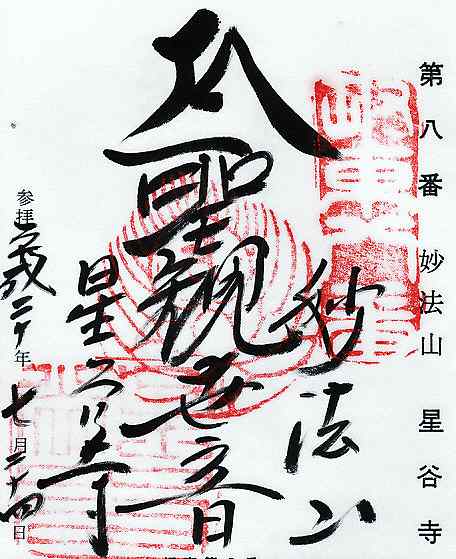 第八番 妙法山 星谷寺
妙法山
聖観世音
星谷寺
参拝 平成二十年 七月二十四日